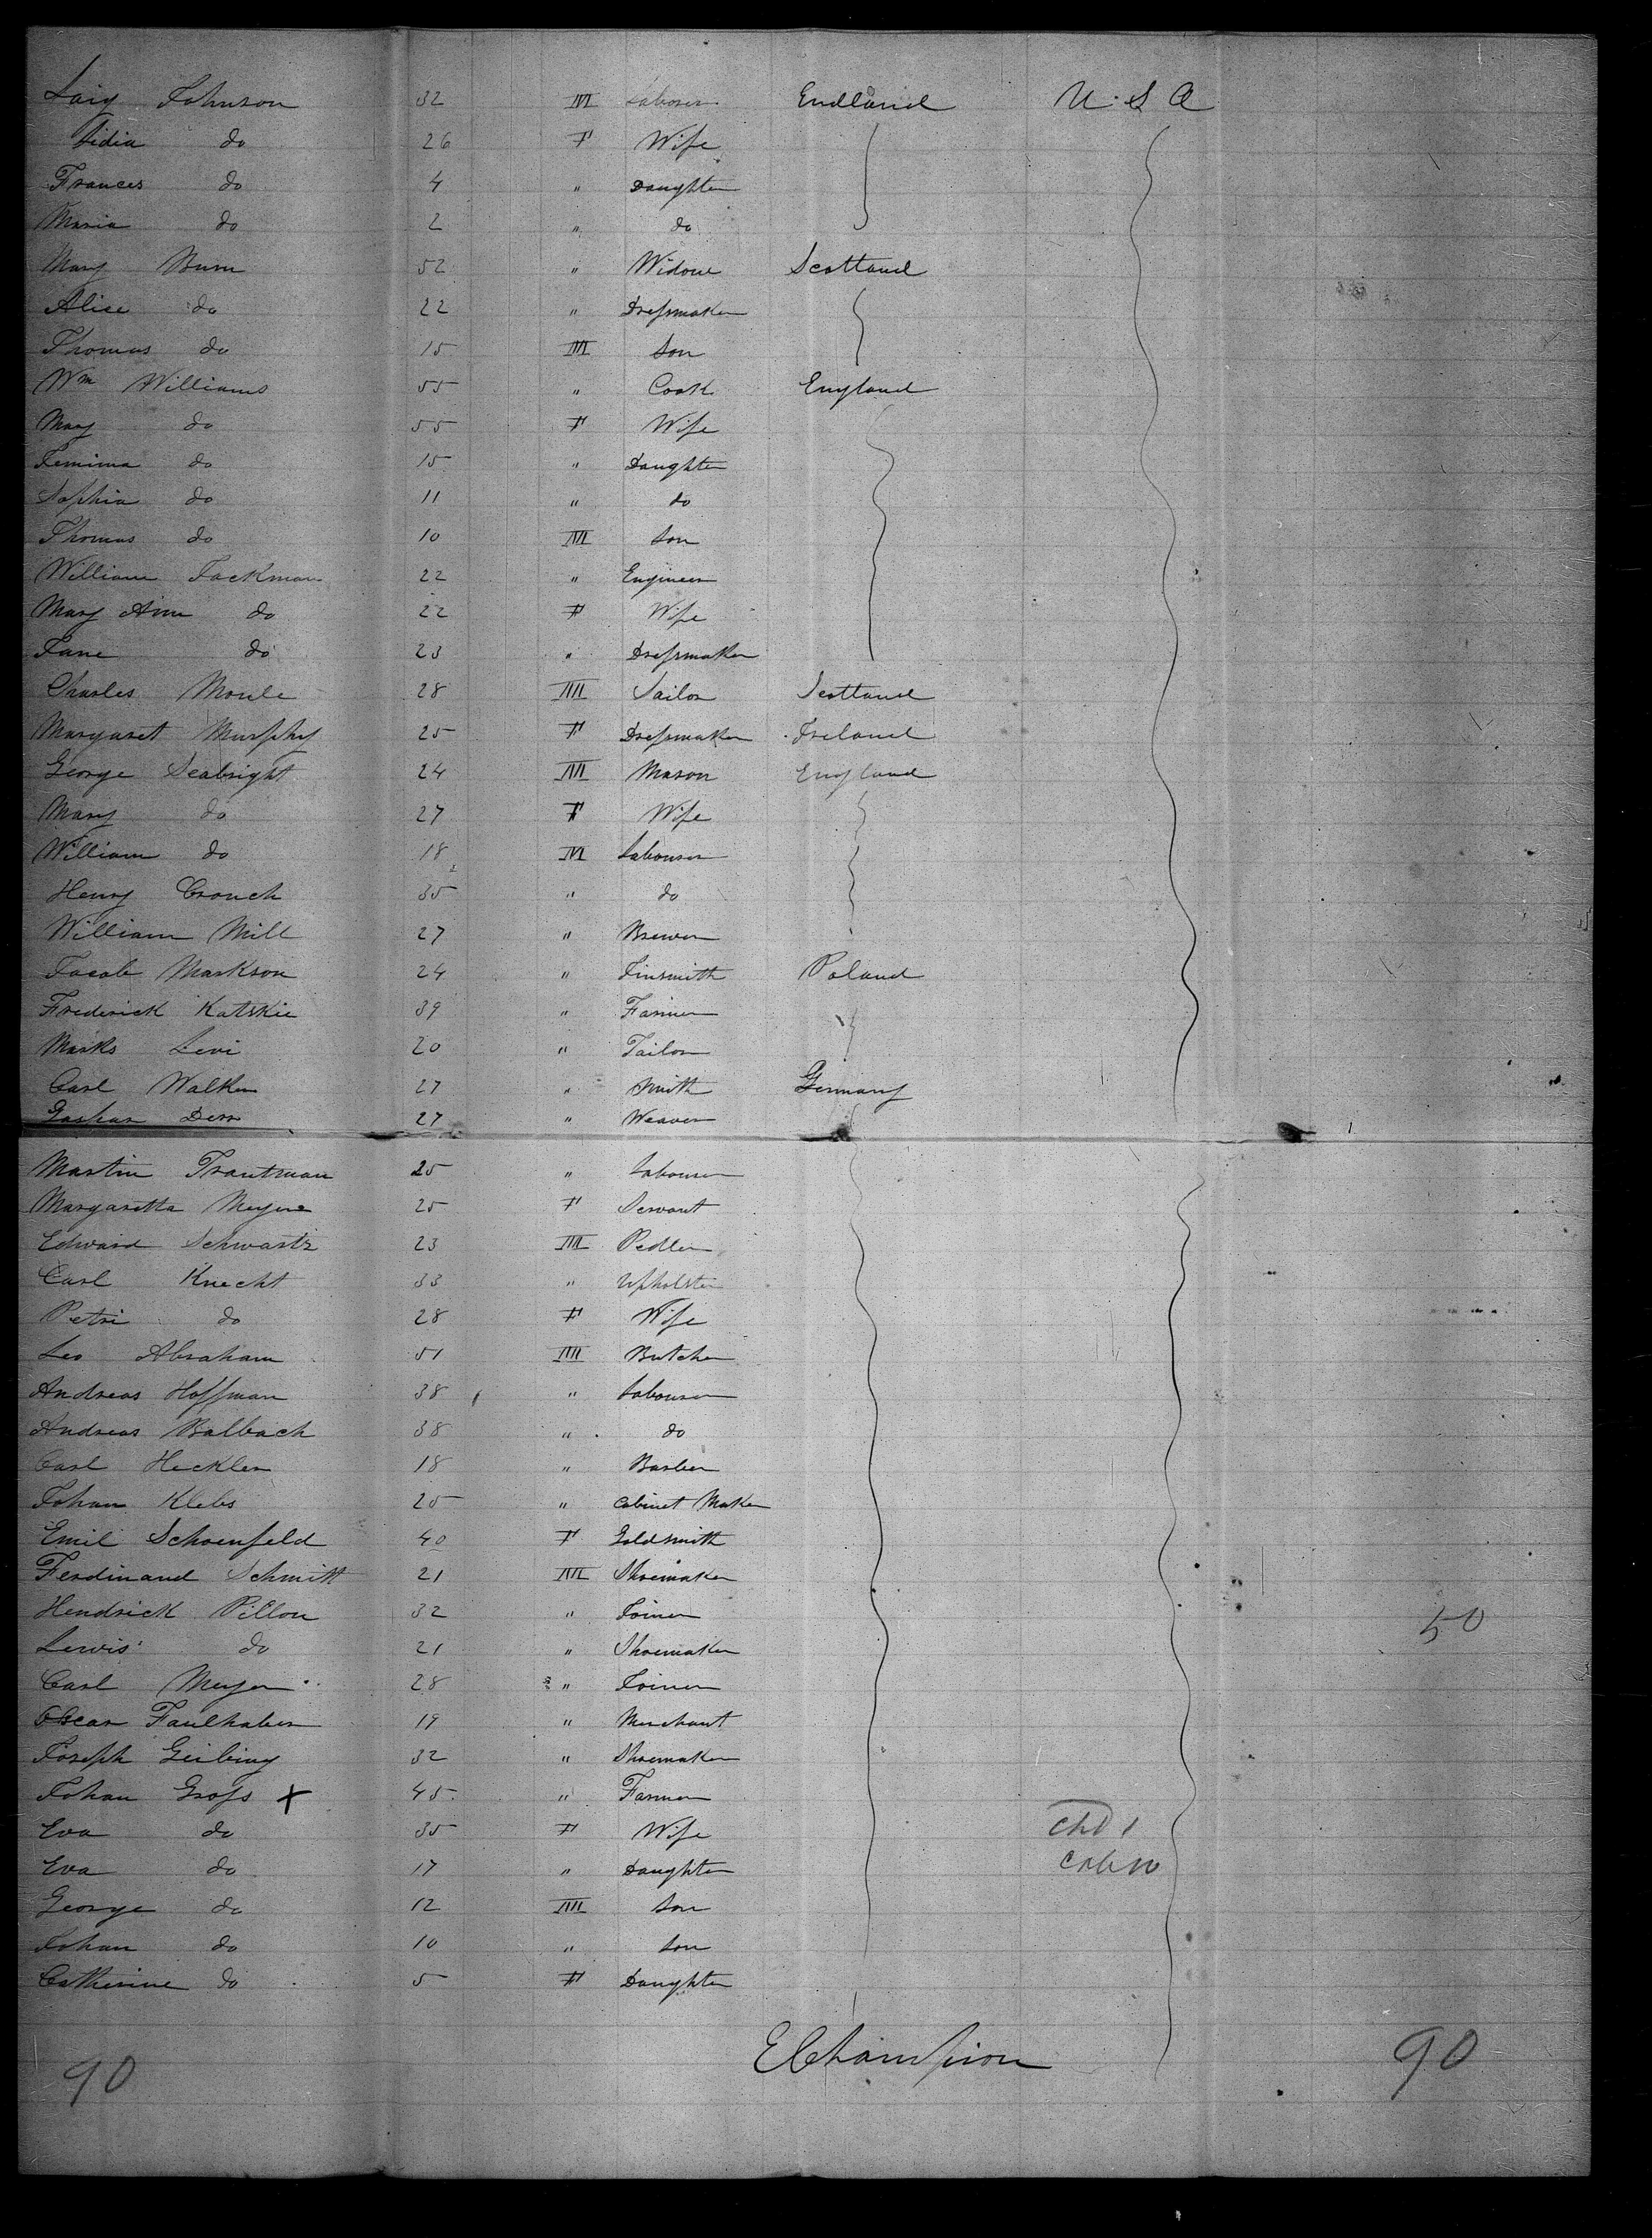 Laig Johnson 32 M Laborer Endland U. S. A
Lidia do 26 F Wife
Frances do 4 " Daughter
Maria do 2 " do
Mary Burn 52 " Widow Scotland
Alice do 22 " Dressmaker
Thomas do 15 M Son
Wm Williams 55 " Cook England
Mary do 55 F Wife
Jemima do 15 " Daughter
Sophia do 11 " do
Thomas do 10 M Son
William Jackman 22 " Engineer
Mary Ann do 22 F Wife
Jane do 23 " Dressmaker
Charles Moule 28 M Sailor Scotland
Margaret Murphy 25 F Dressmaker Ireland
George Seabright 24 M Mason England
Mary do 27 F Wife
William do 18 M Labourer
Henry Crouch 35 " do
William Mill 27 " Brewer
Jacob Markson 24 " Tinsmith Poland
Frederick Katskie 39 " Farmer
Marks Levi 20 " Tailor
Carl Walker 27 " Smith Germany
Gashar Derr 27 " Weaver
Martin Trautman 25 " Labourer
Margaretta Meyer 25 F Servant
Edward Schwartz 23 M Pedler
Carl Knecht 33 " Upholster
Petri do 28 F Wife
Leo Abraham 51 M Butcher
Andreas Hoffman 38 " Labourer
Andreas Balbach 38 " do
Carl Heckler 18 " Barber
Johan Klebs 25 " Cabinet Maker
Emil Schoenfeld 40 F Goldsmith
Ferdinand Schmitt 21 M Shoemaker
Hendrick Pillon 32 " Joiner 50
Lewis do 21 " Shoemaker
Carl Meyer 28 " Joiner
Oscar Faulhaber 19 " Merchant
Joseph Geibing 32 " Shoemaker
Johan Gross X 45 " Farmer
Eva do 35 F Wife
Eva do 17 " Daughter
George do 12 M Son
Johan do 10 " Son
Catherine do 5 F Daughter
E Champion
90 90